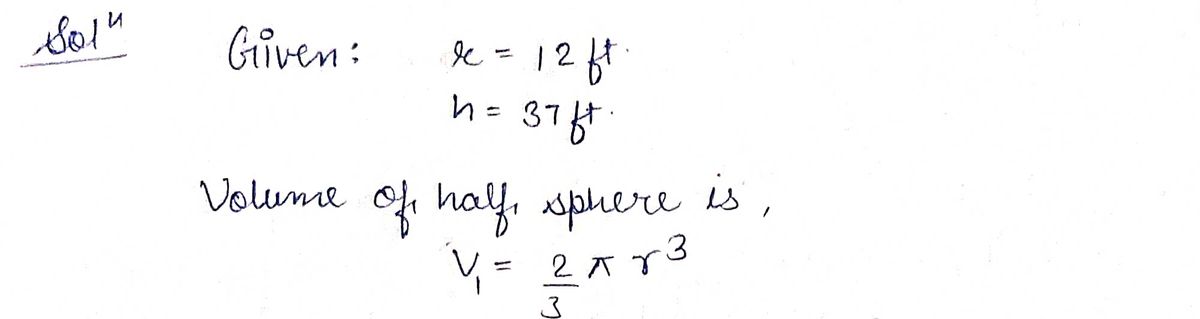 Solⁿ Given: r = 12 ft.
h = 37 ft.
Volume of half sphere is,
V₁ = 2/3 π r³